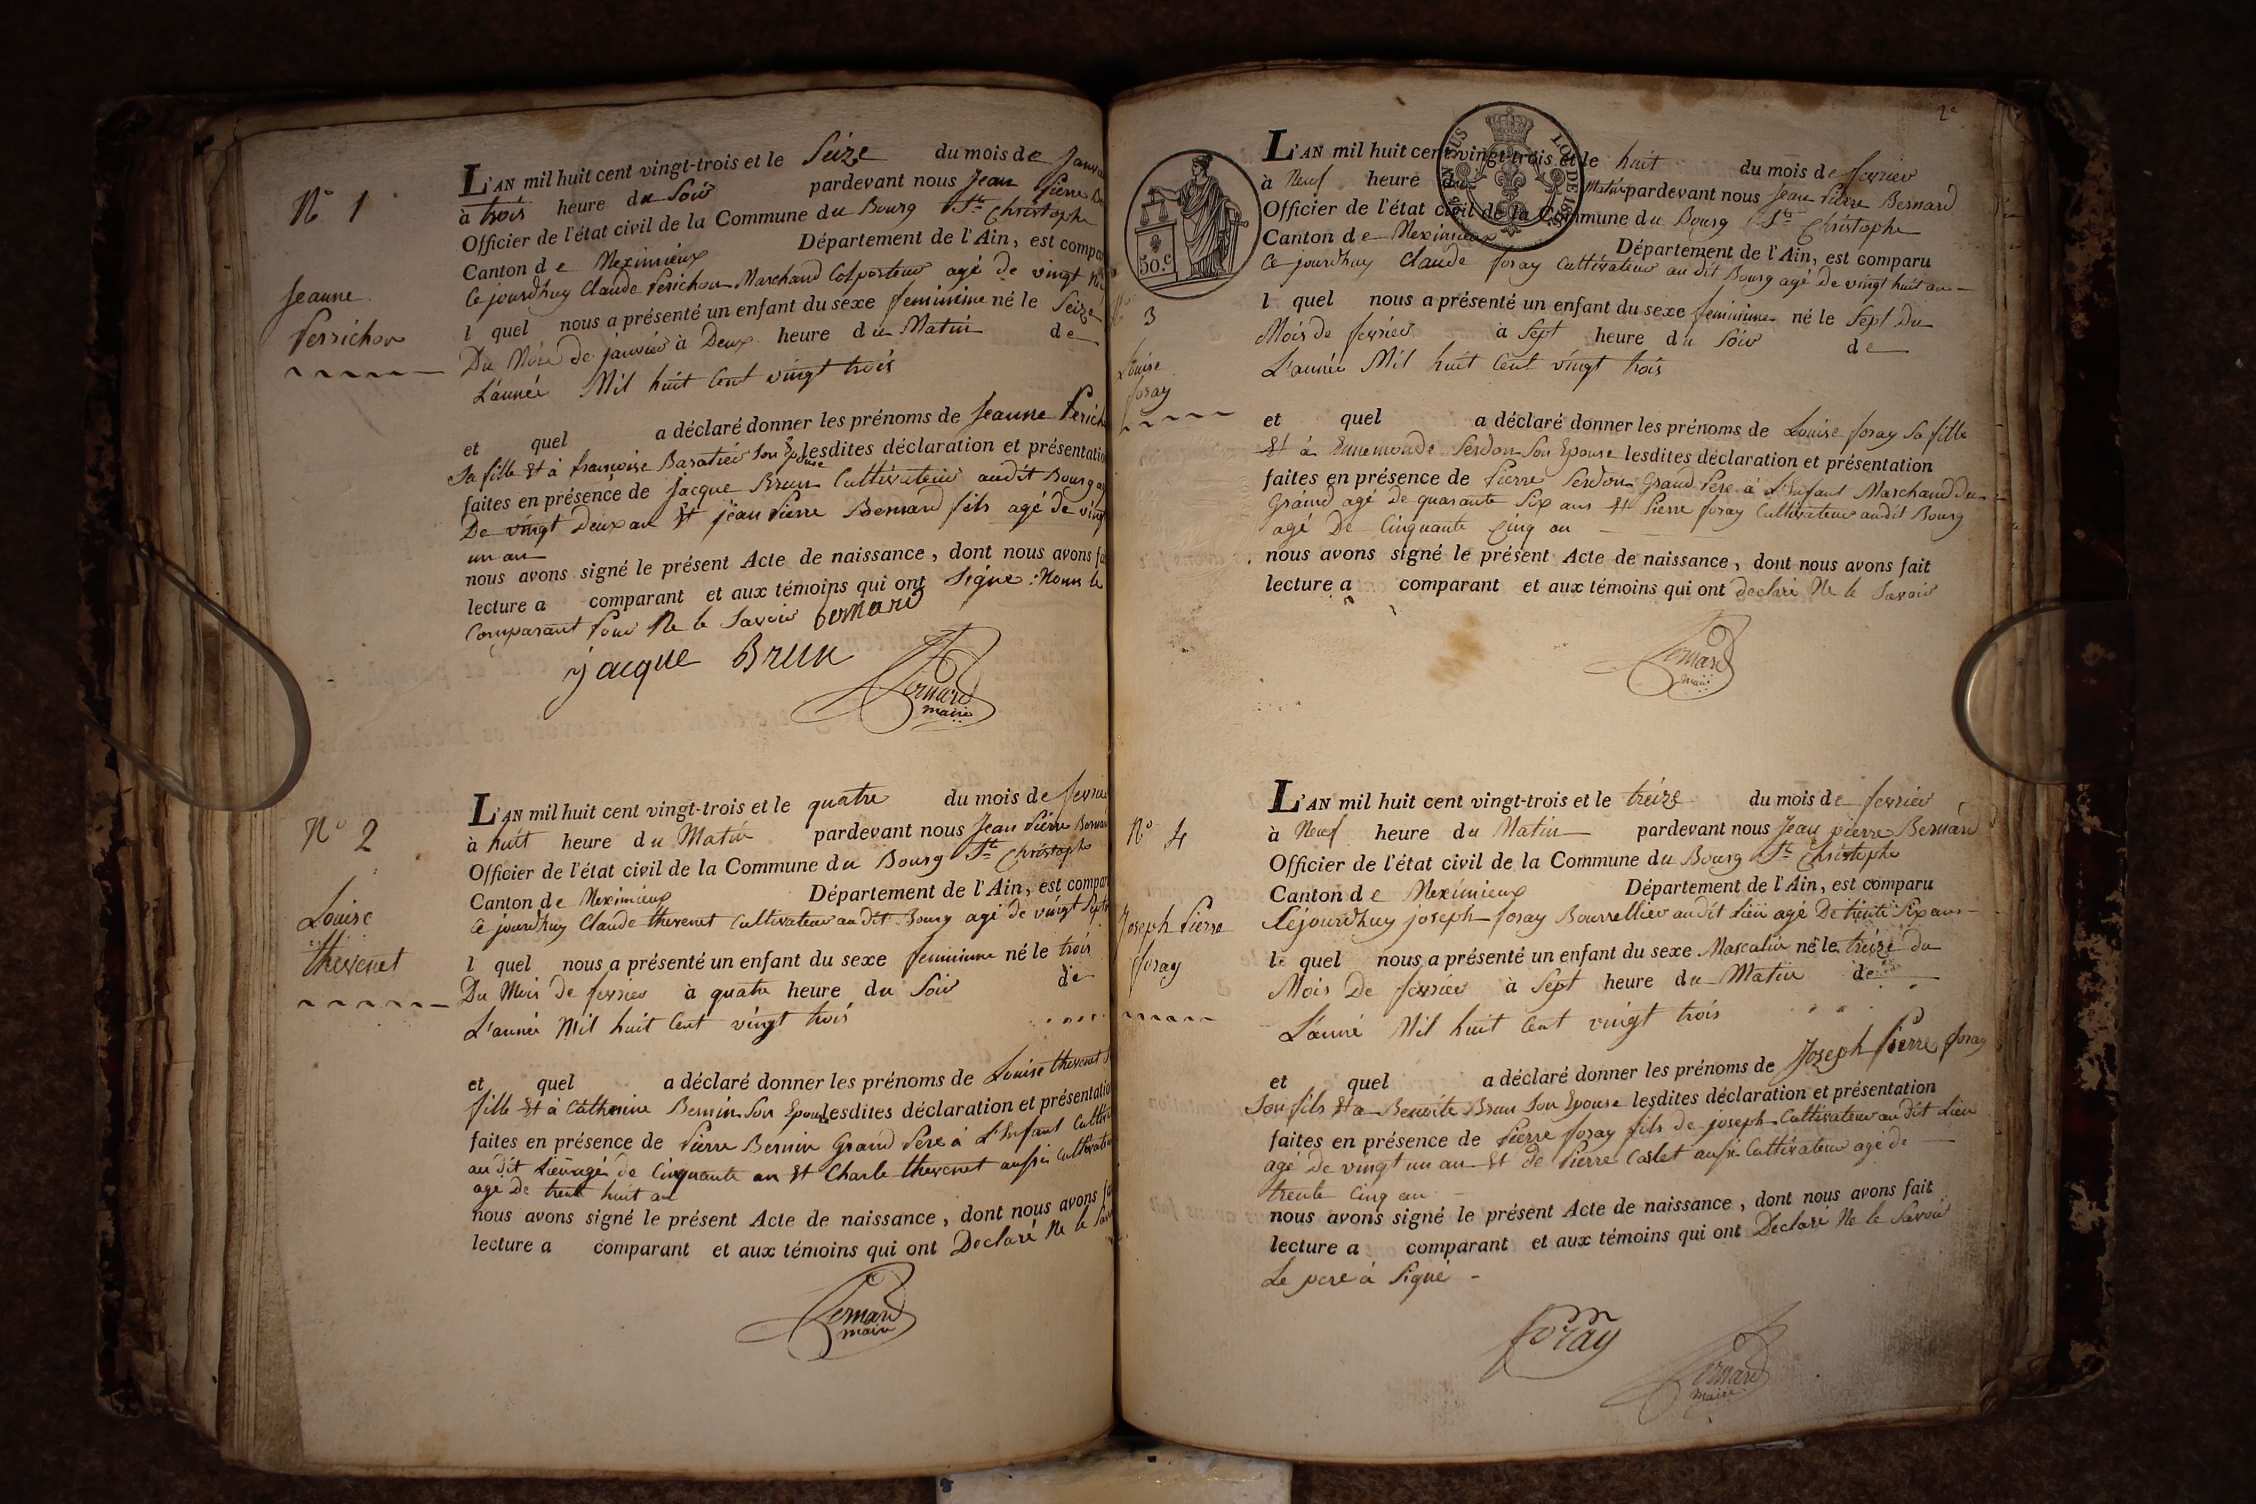 N° 1
Jeanne
Perrichon
L'AN mil huit cent vingt-trois et le Seize du mois de Janvi
à trois heure du Soir pardevant nous Jean Pierre Be
Officier de l'état civil de la Commune du Bourg St Christophe
Canton de Meximieux Département de l'Ain, est compa
Ce jourdhuy Claude Perichon Marchand Colporteur agé de vingt
l quel nous a présenté un enfant du sexe feminine né le Seize
Du Mois de janvier à Deux heure du Matin de
L'année Mil huit Cent vingt trois
et quel a déclaré donner les prénoms de Jeanne Perich
Sa fille Et à françoise Baratier Son Epouse lesdites déclaration et présentatio
faites en présence de Jacque Brun Cultivateur audit Bourg
De vingt Deux an Et jean Pierre Bernard fils agé de vingt
un an
nous avons signé le présent Acte de naissance, dont nous avons fa
lecture a comparant et aux témoins qui ont Signé : Nom le
Comparant Pour Ne le Savoir bernard
jacque Brun
Bernard
maire
N° 2
Louise
thevenet
L'AN mil huit cent vingt-trois et le quatre du mois de fevrier
à huit heure du Matin pardevant nous Jean Pierre Bernar
Officier de l'état civil de la Commune du Bourg St Christophe
Canton de Meximieux Département de l'Ain, est compar
Ce jourdhuy Claude thevenet Cultivateur au dit Bourg agé de vingt Sept
l quel nous a présenté un enfant du sexe feminine né le trois
Du Mois de fevrier à quatre heure du Soir de
L'année Mil huit Cent vingt trois
et quel a déclaré donner les prénoms de Louise thevenet
fille Et à Catherine Bernin Son Epouse lesdites déclaration et présentatio
faites en présence de Pierre Bernin Grand Pere à L'Enfant Cultiv
au dit Lieu agé de Cinquante an Et Charle thevenet aussi Cultivateu
agé De trente huit an
nous avons signé le présent Acte de naissance, dont nous avons fa
lecture a comparant et aux témoins qui ont Declaré Ne le Sav
Bernard
maire
2e
50.c
3
Louise
foray
L'AN mil huit cent vingt-trois et le huit du mois de fevrier
à Neuf heure du Matin pardevant nous Jean Pierre Bernard
Officier de l'état civil de la Commune du Bourg St Christophe
Canton de Meximieux Département de l'Ain, est comparu
Ce jourdhuy Claude foray Cultivateur au dit Bourg agé De vingt huit an
l quel nous a présenté un enfant du sexe feminine né le Sept Du
Mois de fevrier à Sept heure du Soir de
L'année Mil huit Cent vingt trois
et quel a déclaré donner les prénoms de Louise foray Sa fille
Et à Ennemonde Serdon Son Epouse lesdites déclaration et présentation
faites en présence de Pierre Serdon Grand Pere à L'Enfant Marchand
Graind agé De quarante Six ans Et Pierre foray Cultivateur audit Bourg
agé De Cinquante Cinq an
nous avons signé le présent Acte de naissance, dont nous avons fait
lecture a comparant et aux témoins qui ont declaré Ne le Savoir
Bernard
maire
N° 4
Joseph Pierre
foray
L'AN mil huit cent vingt-trois et le treize du mois de fevrier
à Neuf heure du Matin pardevant nous Jean pierre Bernard
Officier de l'état civil de la Commune du Bourg St Christophe
Canton de Meximieux Département de l'Ain, est comparu
Cejourdhuy joseph foray Bourrellier audit Lieu agé De trente Six ans
le quel nous a présenté un enfant du sexe Masculin né le treize du
Mois De fevrier à Sept heure du Matin de
L'anné Mil huit Cent vingt trois
et quel a déclaré donner les prénoms de Joseph Pierre foray
Son fils Et a Benoite Brun Son Epouse lesdites déclaration et présentation
faites en présence de Pierre foray fils de joseph Cultivateur au dit Lieu
agé De vingt un an Et de Pierre Caslet aussi Cultivateur agé de
trente Cinq an
nous avons signé le présent Acte de naissance, dont nous avons fait
lecture a comparant et aux témoins qui ont Declaré Ne le Savoir
Le pere à Signé
foray
Bernard
maire